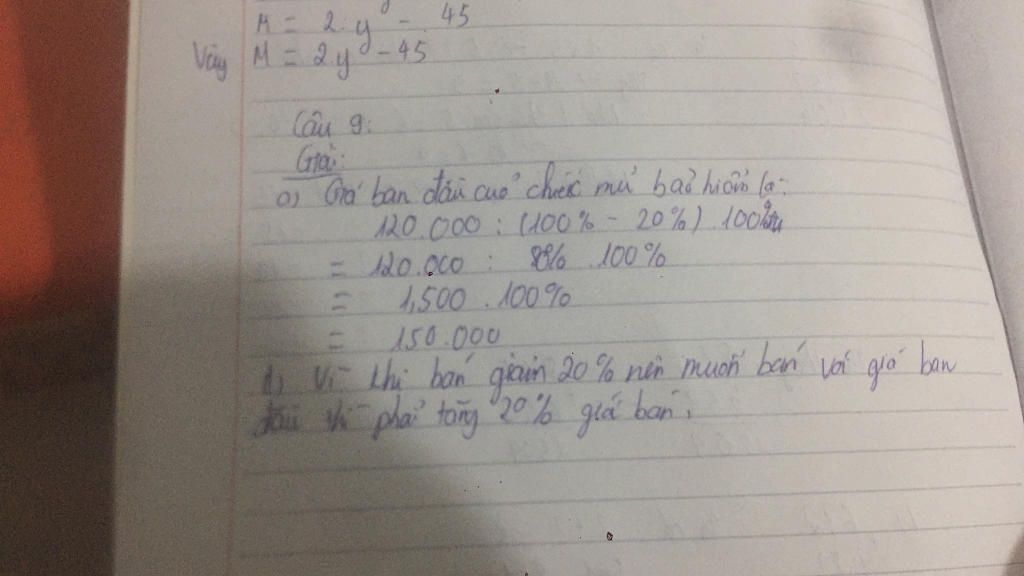 M = 2.y - 45
Vậy M = 2.y - 45
Câu 9:
Giải:
a) Giá ban đầu của chiếc mũ bảo hiểm là:
120.000 : (100% - 20%) . 100%
= 120.000 : 80% . 100%
= 1,500 . 100%
= 150.000
b) Vì khi bán giảm 20% nên muốn bán với giá ban
đầu thì phải tăng 20% giá bán.